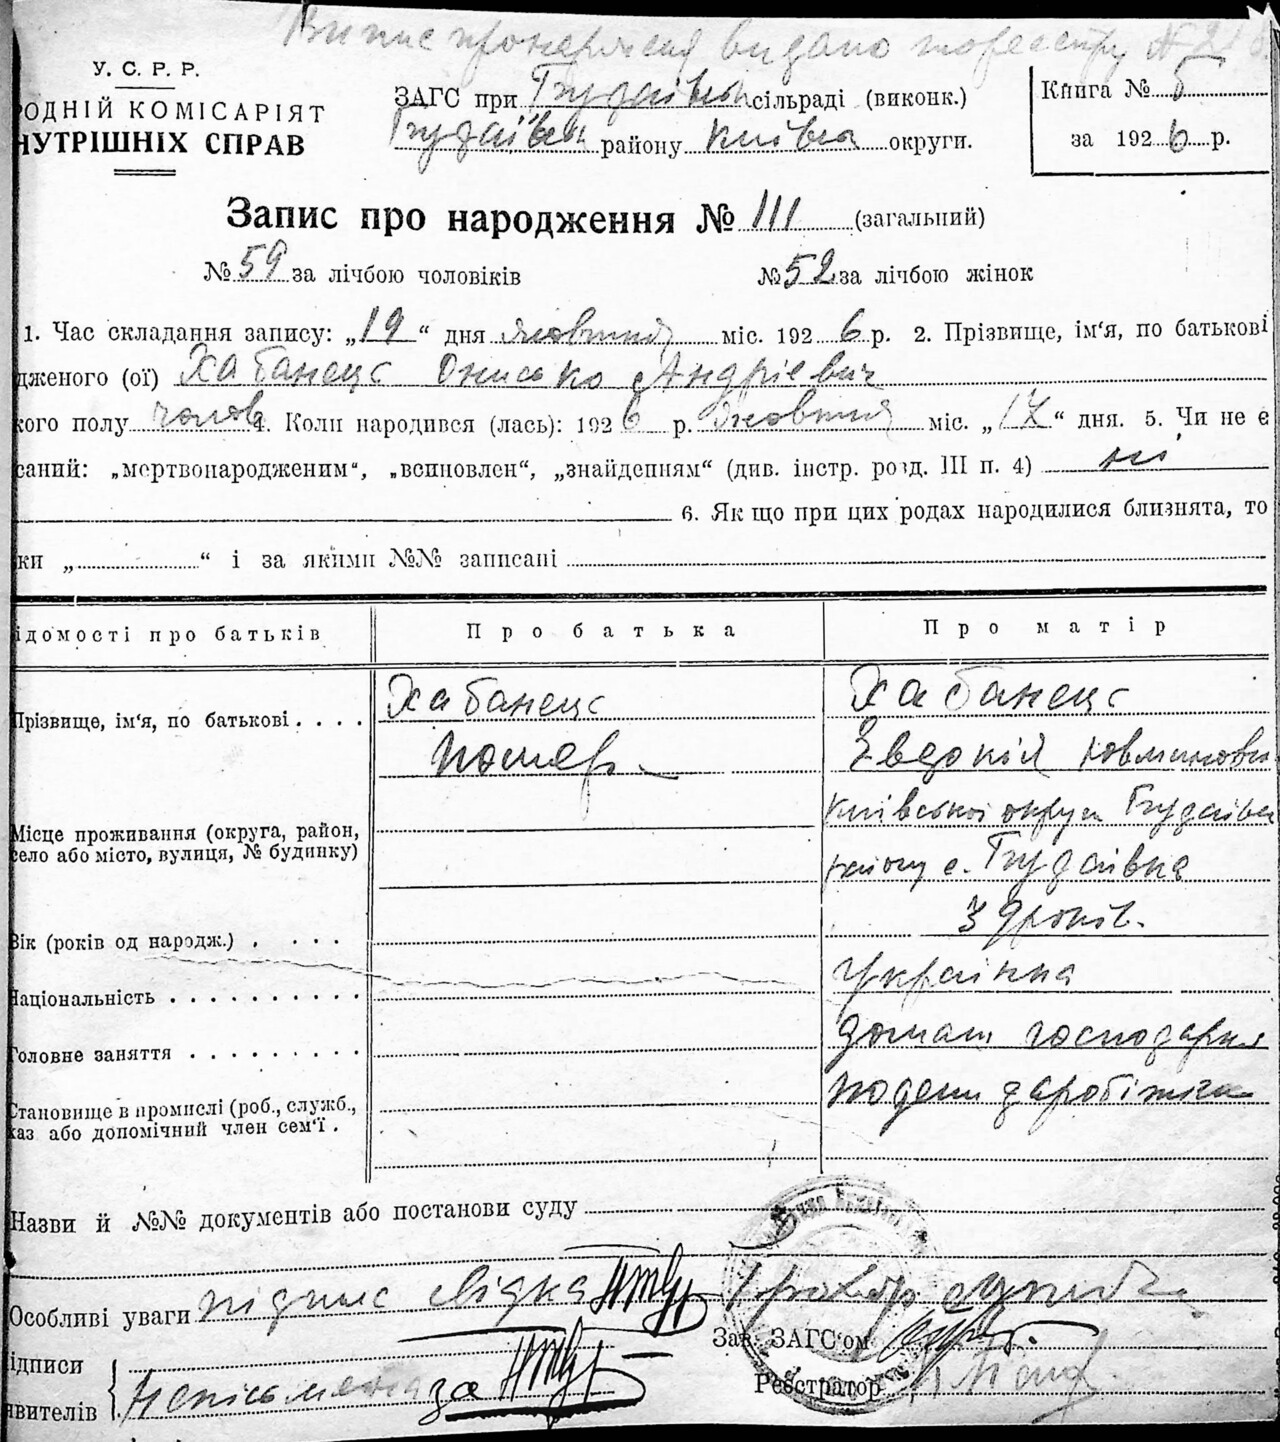 Випис видано
У. С. Р. Р.
ОДНІЙ КОМІСАРІЯТ
НУТРІШНІХ СПРАВ
ЗАГС при сільраді (виконк.)
району Київськ округи.
Книга № 5
за 1926 р.
Запис про народження № 111 (загальний)
№ 59 за лічбою чоловіків № 52 за лічбою жінок
1. Час складання запису: „19“ дня жовтня міс. 1926 р. 2. Прізвище, ім‘я, по батькові
дженого (ої) Хабанець Онисько Андрієвич
ого полу чолов 4. Коли народився (лась): 1926 р. жовтня міс. „17“ дня. 5. Чи не є
саний: „мертвонародженим“, „всиновлен“, „знайденням“ (див. інстр. розд. III п. 4) ні
6. Як що при цих родах народилися близнята, то
ки „ “ і за якими №№ записані
ідомості про батьків Про батька Про матір
Прізвище, ім‘я, по батькові Хабанець Хабанець
помер Евдокія
Київської округи
Місце проживання (округа, район,
село або місто, вулиця, № будинку) району с.
Вік (років од народж.) 39 років.
Національність Українка
Головне заняття домаш господарка
Становище в промислі (роб., служб.,
каз або допомічний член сем‘ї.
Назви й №№ документів або постанови суду
Особливі уваги підпис свідка
Зав. ЗАГС‘ом
ідписи
явителів Неписьменна за
Реєстратор